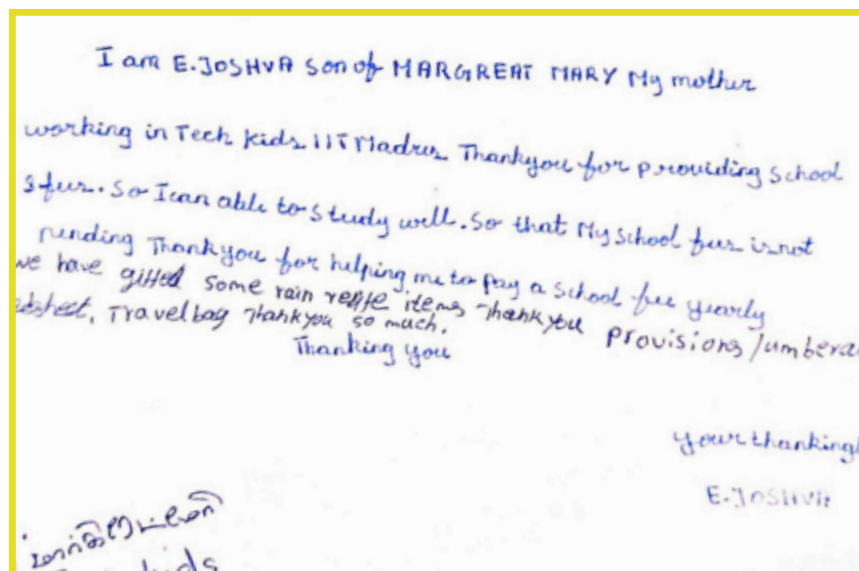 I am E.JOSHVA son of MARGREAT MARY My mother
working in Tech kids IIT Madras Thankyou for providing school
s fees. So I can able to study well. So that My school fees is not
pending Thankyou for helping me to pay a school fee yearly
we have gifted some rain relife items Thankyou provisions/umberal
edsheet, Travel bag Thankyou so much.
Thanking you
your thankingl
E.JOSHVA
மார்கிரேட்மேரி
kids